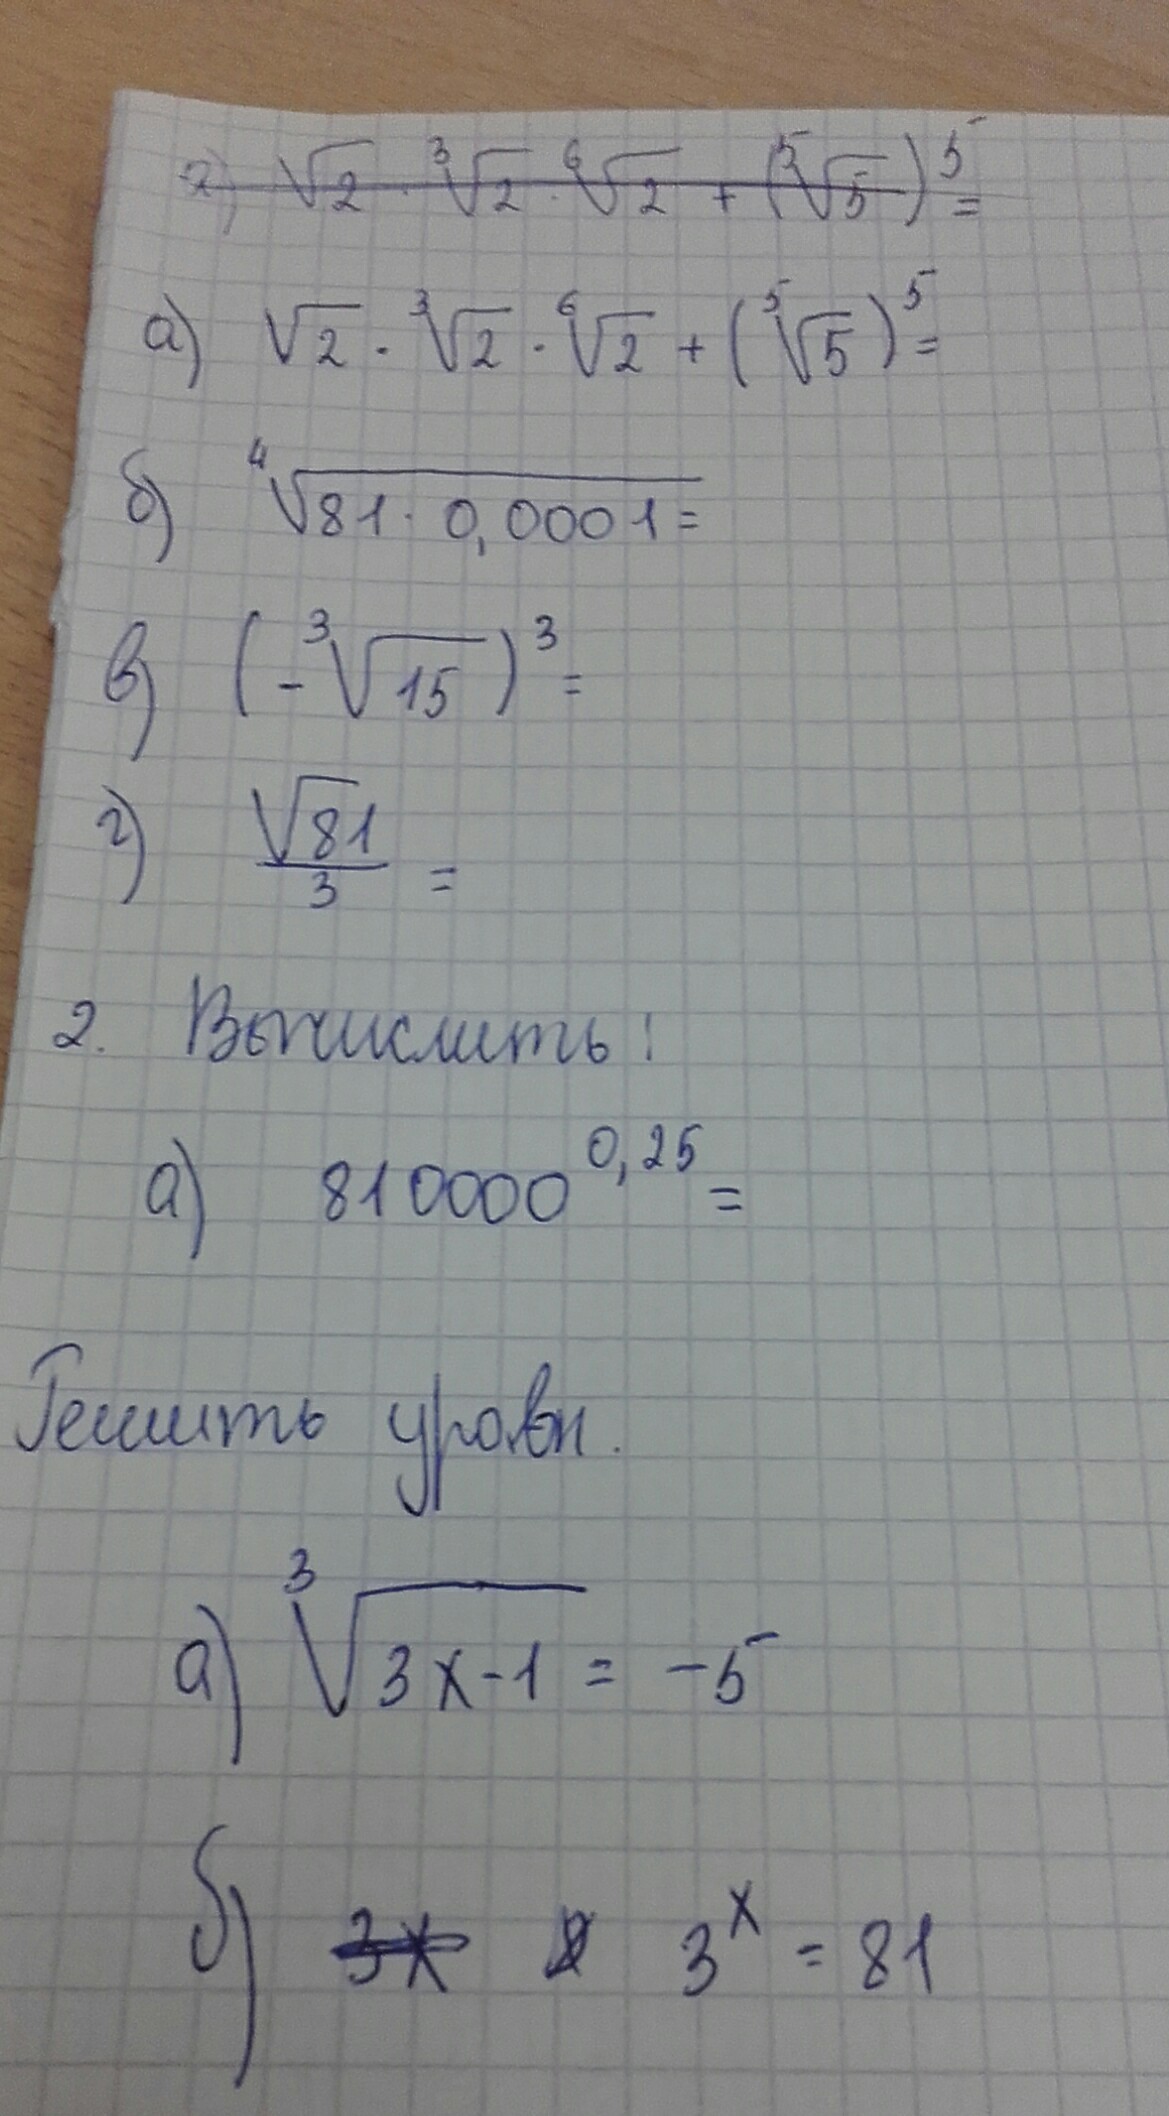 а) √2 · ³√2 · ⁶√2 + (⁵√5)⁵ =
а) √2 · ³√2 · ⁶√2 + (⁵√5)⁵ =
б) ⁴√81 · 0,0001 =
в) (-³√15)³ =
г) √81/3 =
2. Вычислить:
а) 810000^0,25 =
Решить уравн.
а) ³√3x-1 = -5
б) 3x 3^x = 81